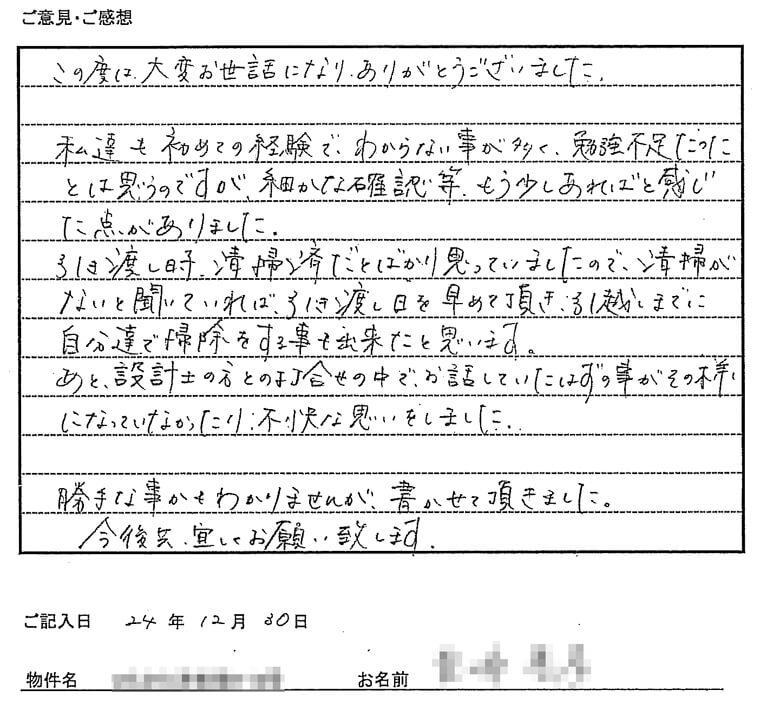 ご意見・ご感想
この度は、大変お世話になり、ありがとうございました。
私達も初めての経験で、わからない事が多く、勉強不足だった
とは思うのですが、細かな確認等、もう少しあればと感じ
た点がありました。
引き渡し時、清掃済だとばかり思っていましたので、清掃が
ないと聞いていれば、引き渡し日を早めて頂き、引越しまでに
自分達で掃除をする事も出来たと思います。
あと、設計士の方との打合せの中で、お話していたはずの事がその様に
になっていなかったり、不快な思いをしました。
勝手な事かもわかりませんが、書かせて頂きました。
今後共、宜しくお願い致します。
ご記入日 24年12月30日
物件名 お名前